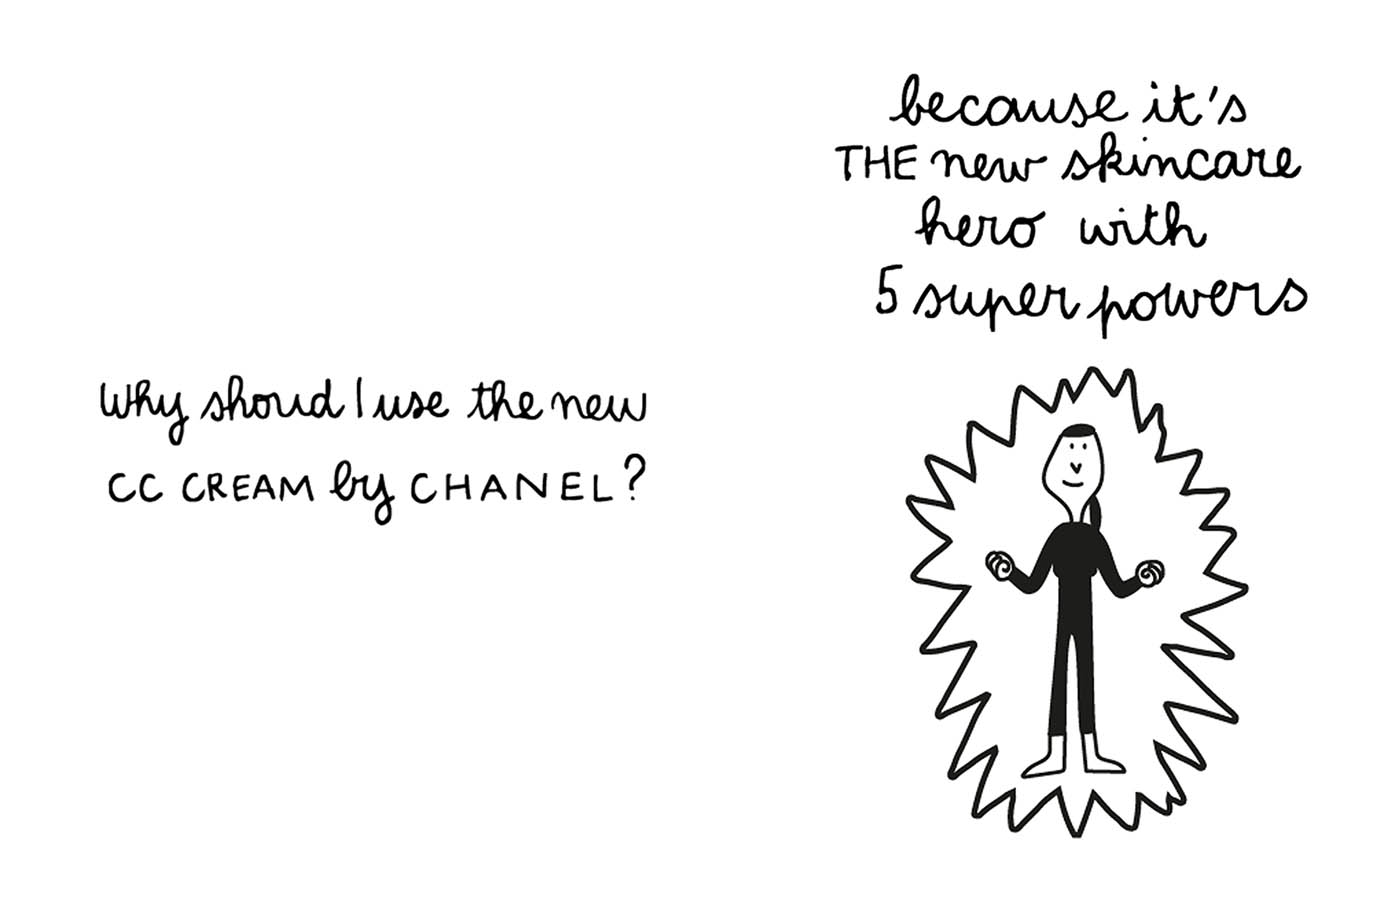 Why shoud I use the new
CC CREAM by CHANEL?
because it's
THE new skincare
hero with
5 super powers